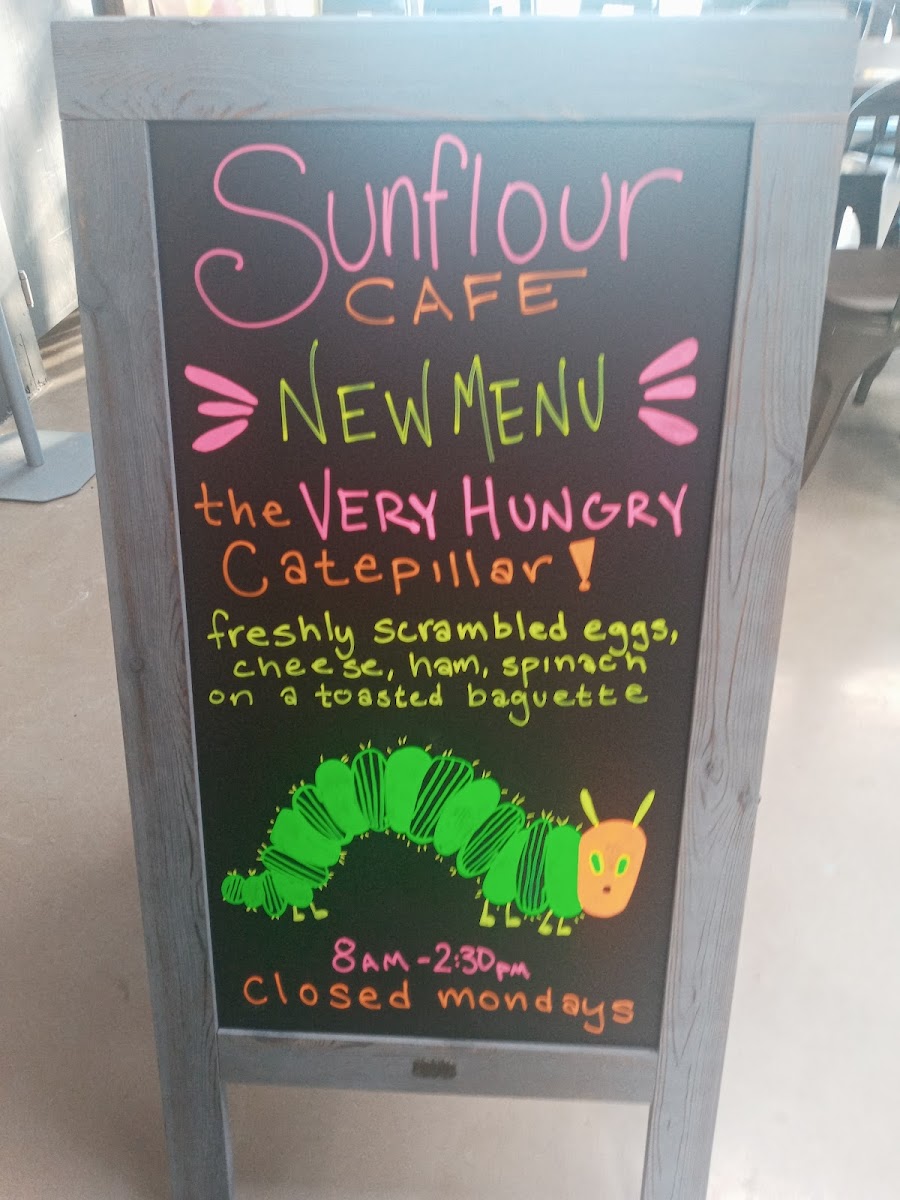 Sunflour
CAFE
NEW MENU
the VERY HUNGRY
Catepillar!
freshly scrambled eggs,
cheese, ham, spinach
on a toasted baguette
8AM-2:30PM
closed mondays